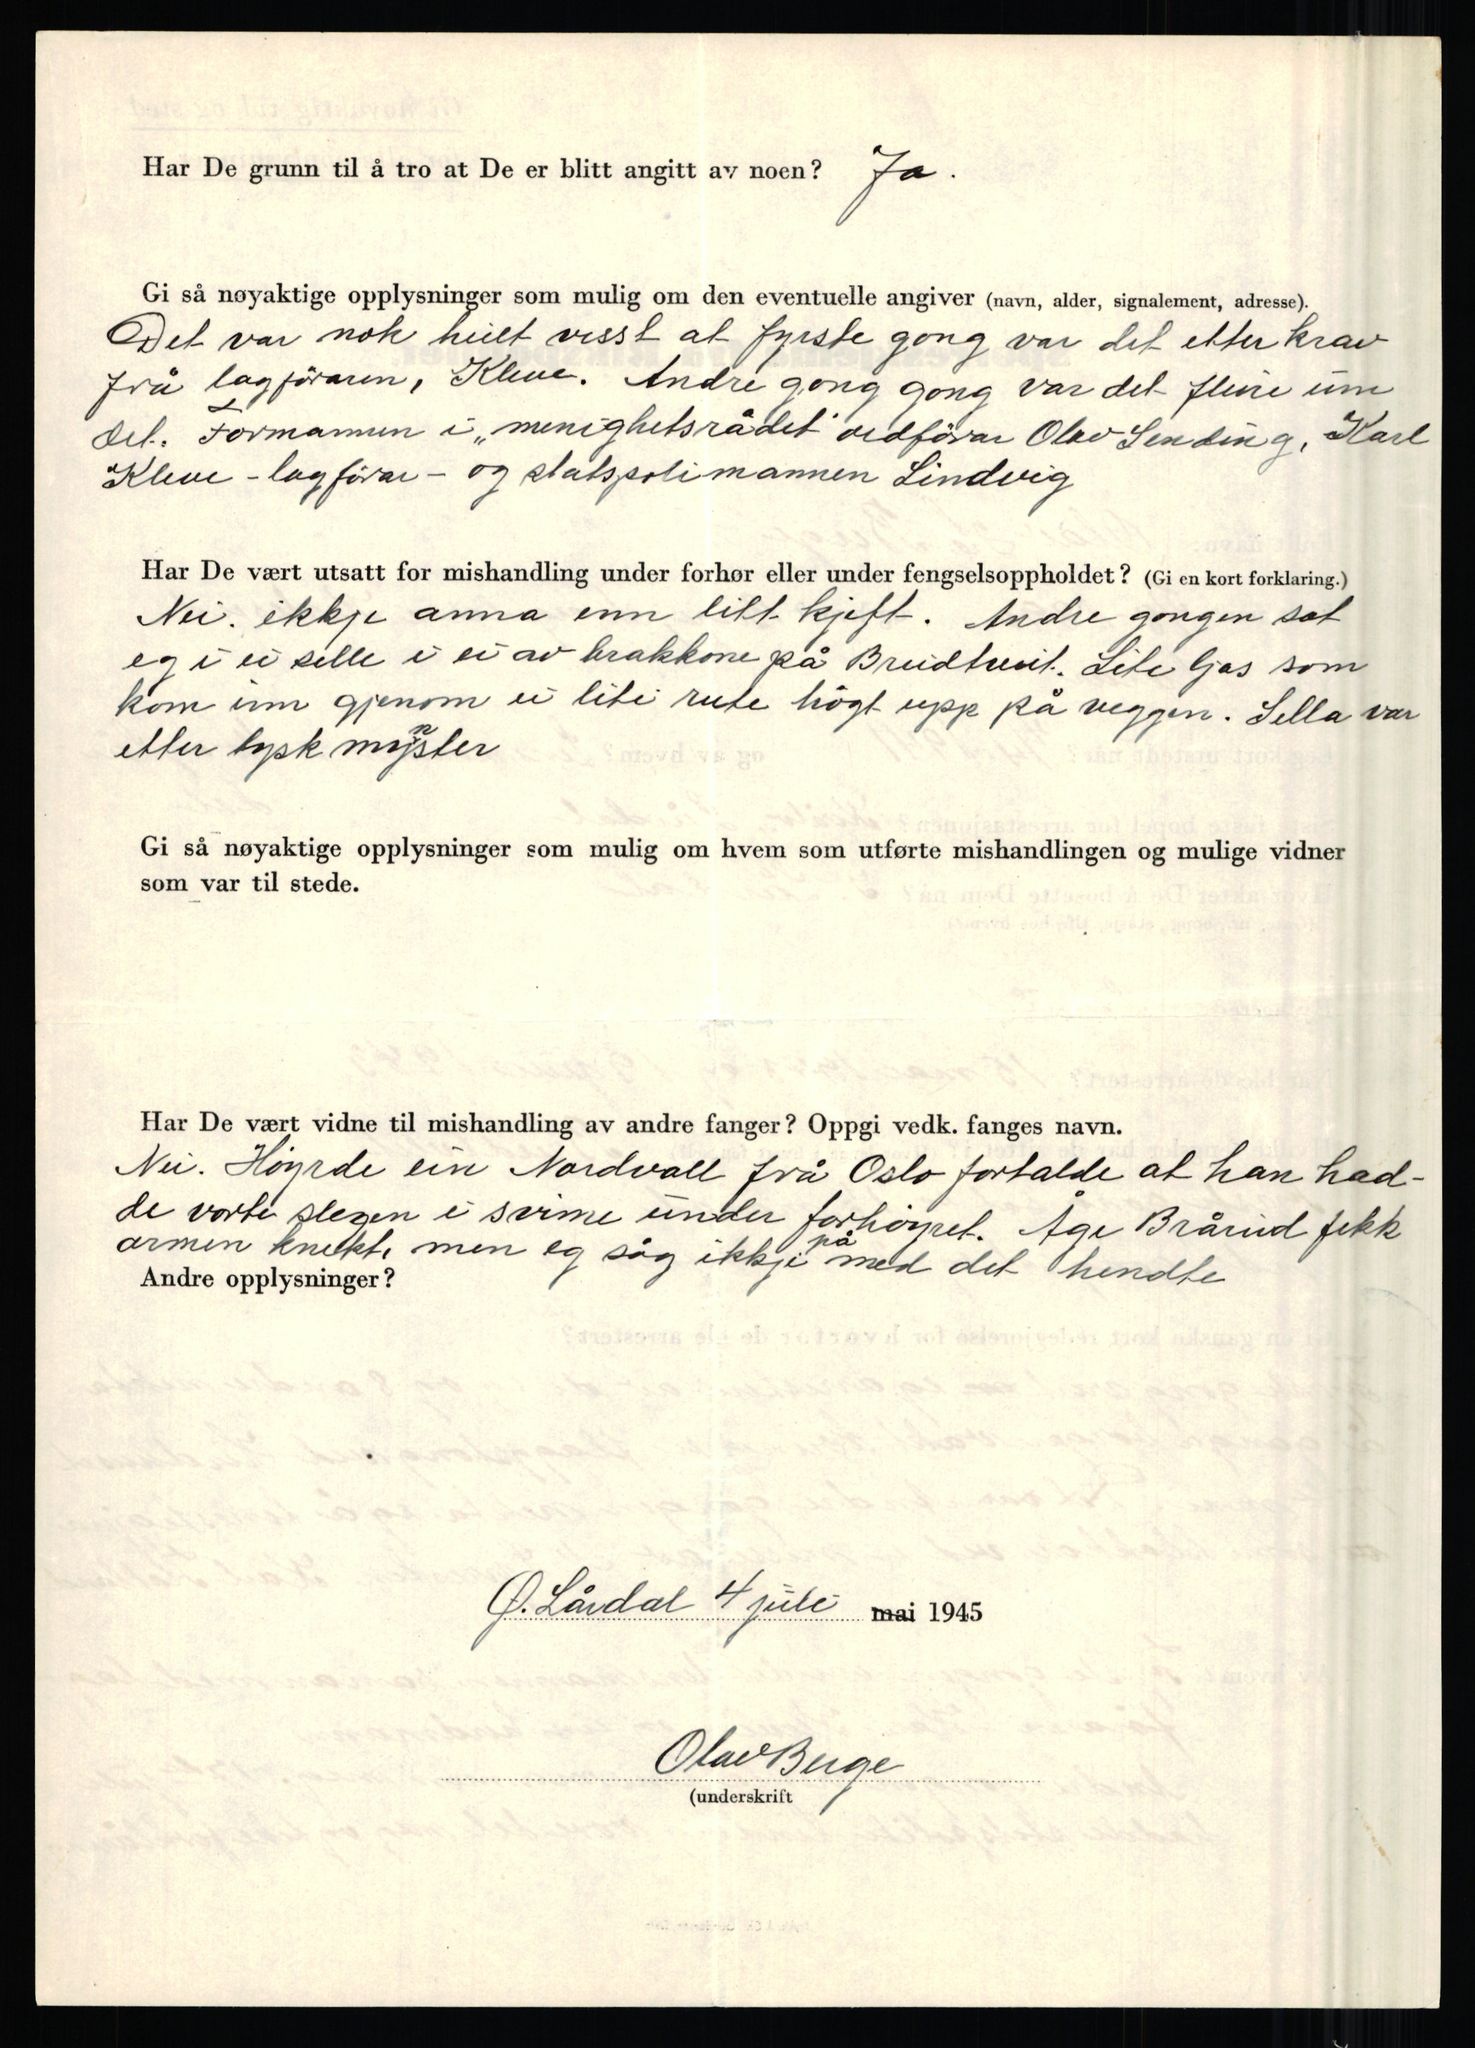 Har De grunn til å tro at De er blitt angitt av noen? Ja.
Gi så nøyaktige opplysninger som mulig om den eventuelle angiver (navn, alder, signalement, adresse).
Det var nok heilt visst at fyrste gong var det etter krav
frå lagföraren, Kleve. Andre gong gong var det fleire um
det. Formannen i „menighetsrådet" ordförar Olav Sending, Karl
Kleve - lagförar - og statspolimannen Lindvig
Har De vært utsatt for mishandling under forhør eller under fengselsoppholdet? (Gi en kort forklaring.)
Nei. ikkje anna enn litt kjeft. Andre gongen sat
eg i ei selle i ei av brakkone på Bredtveit. Lite ljos som
kom inn gjenom ei liti rute högt upp på veggen. Sella var
etter tysk mynster
Gi så nøyaktige opplysninger som mulig om hvem som utførte mishandlingen og mulige vidner
som var til stede.
Har De vært vidne til mishandling av andre fanger? Oppgi vedk. fanges navn.
Nei. Höyrde ein Nordvall frå Oslo fortalde at han had-
de vorte slegen i svime under forhöyret. Åge Brårud fekk
armen knekt, men eg såg ikkje på med det hendte
Andre opplysninger?
Ø. Lårdal 4 juli mai 1945
Olav Berge
(underskrift